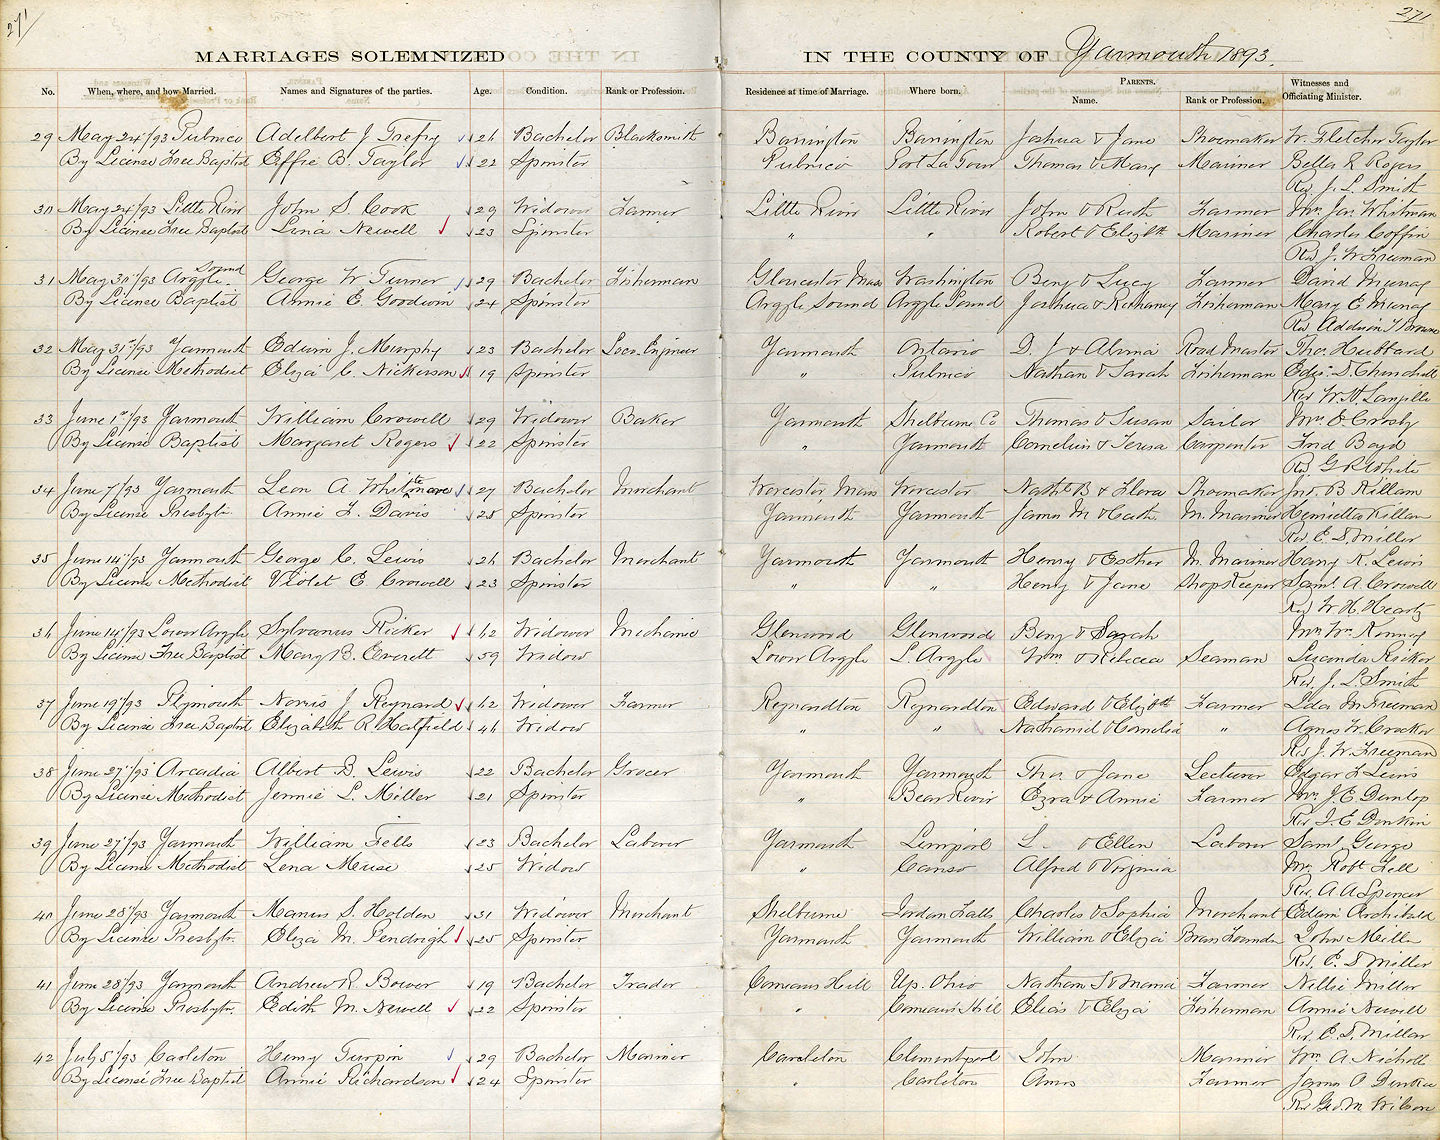 271 271
MARRIAGES SOLEMNIZED IN THE COUNTY OF Yarmouth 1893.
No. When, where, and how Married. Names and Signatures of the parties. Age. Condition. Rank or Profession. Residence at time of Marriage. Where born. PARENTS. Name. Rank or Profession. Witnesses and Officiating Minister.
29 May 24/93 Pubnico Adelbert J. Trefry 26 Bachelor Blacksmith Barrington Barrington Joshua & Jane Shoemaker W. Fletcher Taylor
By License Free Baptist Effie B. Taylor 22 Spinster Pubnico Port La Tour Thomas & Mary Mariner Bella R Rogers
Rev. J. L. Smith
30 May 24/93 Little River John S. Cook 29 Widower Farmer Little River Little River John & Ruth Farmer Mrs Jas. Whitman
By License Free Baptist Lina Newell 23 Spinster " " Robert & Elizbth Mariner Charles Coffin
Rev J. W. Freeman
31 May 30/93 Argyle Sound George W. Turner 29 Bachelor Fisherman Gloucester Mass Washington Benj & Lucy Farmer David Murray
By License Baptist Annie E. Goodwin 24 Spinster Argyle Sound Argyle Sound Joshua & Fisherman Mary E Murray
Rev Addison F Browne
32 May 31st/93 Yarmouth Edwin J. Murphy 23 Bachelor Loco. Engineer Yarmouth Ontario D. J & Almia Road Master Tho. Hubbard
By License Methodist Eliza C. Nickerson 19 Spinster " Pubnico Nathan & Sarah Fisherman Edgr. S. Churchill
Rev W. H. Langille
33 June 1st/93 Yarmouth William Crowell 29 Widower Baker Yarmouth Shelburne Co Thomas & Susan Sailor Mrs. O Crosby
By License Baptist Margaret Rogers 22 Spinster " Yarmouth Cornelius & Teresa Carpenter Fred Boyd
Rev G R White
34 June 7/93 Yarmouth Leon A. Whittemore 27 Bachelor Merchant Worcester Mass Worcester Nathl B & Flora Shoemaker Jno. B Killam
By License Presbytn. Annie F. Davis 25 Spinster Yarmouth Yarmouth James M & Cath. M. Mariner Henrietta Killam
Rev E. D Millar
35 June 14/93 Yarmouth George C. Lewis 26 Bachelor Merchant Yarmouth Yarmouth Henry & Esther M. Mariner Harry K. Lewis
By License Methodist Violet E. Crowell 23 Spinster " " Henry & Jane Shop Keeper Saml. A. Crowell
Rev W. H. Heartz
36 June 14/93 Lower Argyle Sylvanus Ricker 62 Widower Mechanic Glenwood Glenwood Benj & Sarah Mrs Wm. Kenney
By License Free Baptist Mary B. Everett 59 Widow Lower Argyle L. Argyle Wm & Rebecca Seaman Lucinda Ricker
Rev. J. L Smith
37 June 19/93 Plymouth Norris J. Reynard 62 Widower Farmer Reynardton Reynardton Edward & Elizbth Farmer Lda M Freeman
By License Free Baptist Elizabeth R. Hatfield 46 Widow " " Nathaniel & Cornelia " Agnes W. Crocker
Rev J. W. Freeman
38 June 27/93 Arcadia Albert B. Lewis 22 Bachelor Grocer Yarmouth Yarmouth Tho. & Jane Lecturer Edgar F Lewis
By License Methodist Jennie L. Miller 21 Spinster " Bear River Ezra & Annie Farmer Mrs. J. E. Dunlop
Rev J. E Donkin
39 June 27/93 Yarmouth William Fells 23 Bachelor Laborer Yarmouth Liverpool L. & Ellen Laborer Saml George
By License Methodist Lena Muise 25 Widow " Canso Alfred & Virginia Mrs Robt Fell
Rev. A A Spencer
40 June 28/93 Yarmouth Manus S. Holden 31 Widower Merchant Shelburne Jordan Falls Charles & Sophia Merchant Edwin Archibald
By License Presbytn. Eliza M. Pendrigh 25 Spinster Yarmouth Yarmouth William & Eliza Brass Founder John Miller
Rev. E. D Millar
41 June 28/93 Yarmouth Andrew R. Bower 19 Bachelor Trader Comeaus Hill Up. Ohio Nathan S & Maria Farmer Nellie Miller
By License Presbytn. Edith M. Newell 22 Spinster " Comeau's Hill Elias & Eliza Fisherman Annie Newell
Rev. E. D. Millar
42 July 5/93 Carleton Henry Turpin 29 Bachelor Mariner Carleton Clementsport John Mariner Wm. A. Nicholl
By License Free Baptist Annie Richardson 24 Spinster " Carleton Amos Farmer James O Durkee
Rev Geo. M Wilson